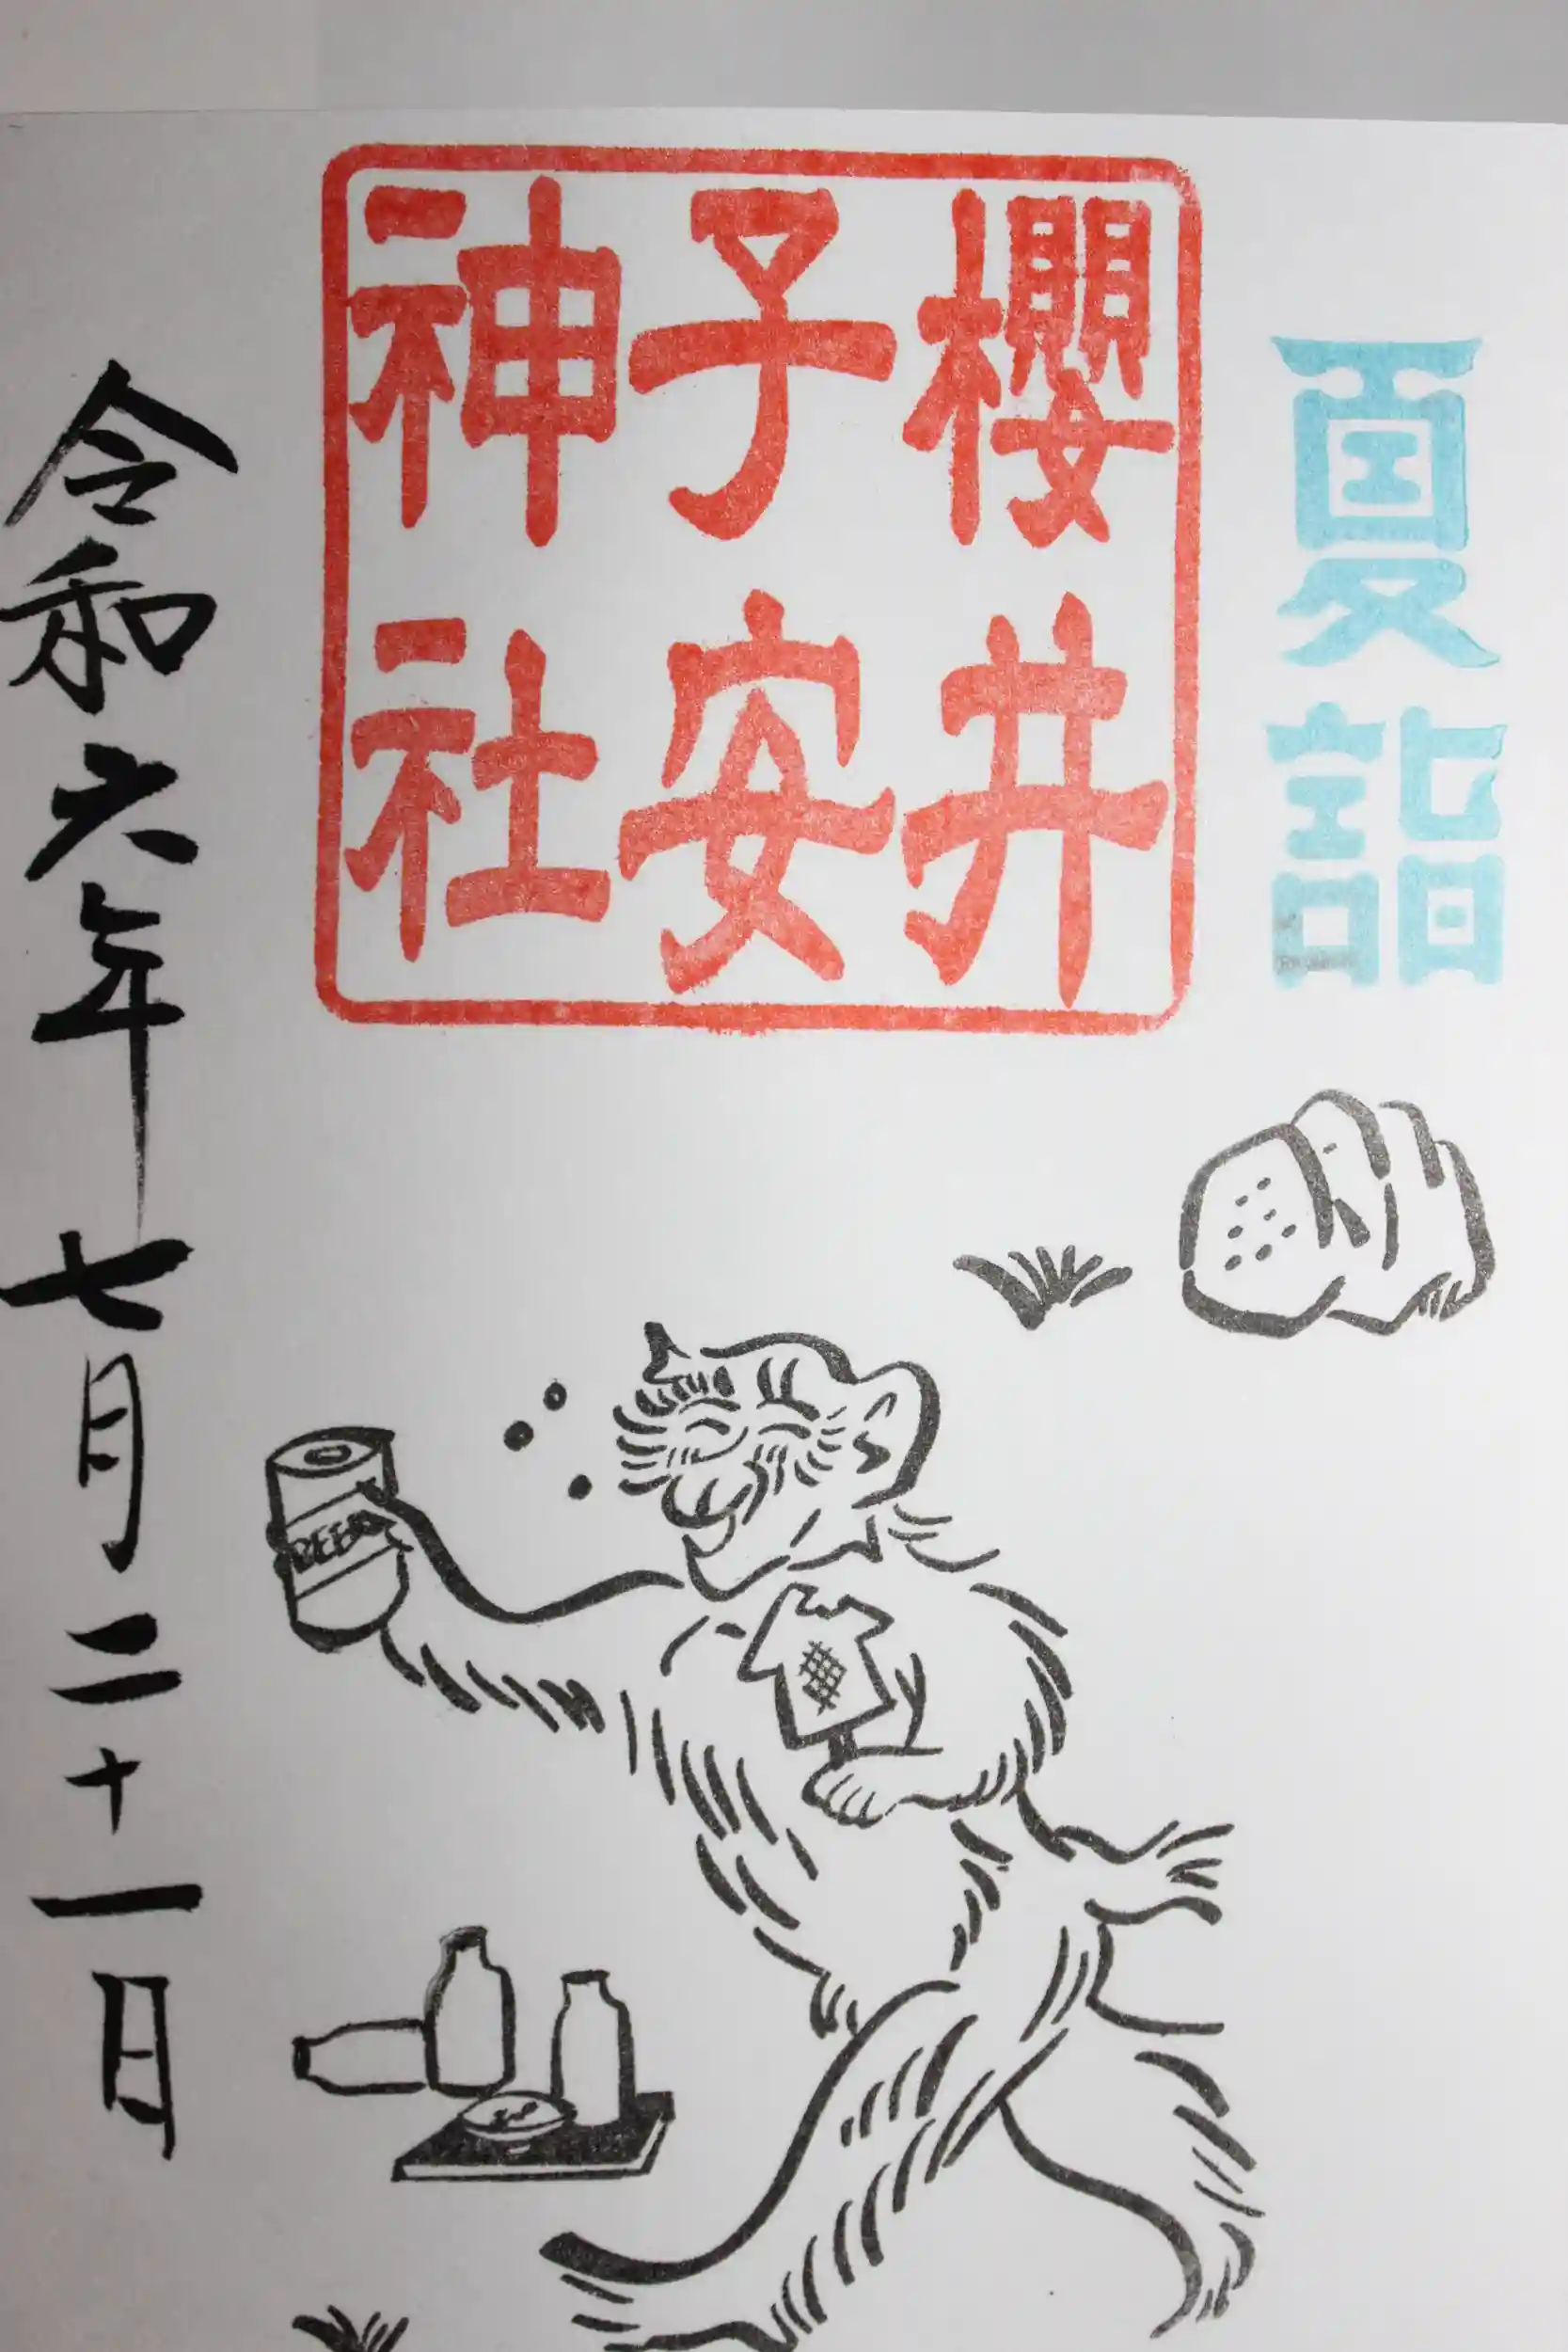 夏詣
櫻井
子安
神社
令和六年七月二十一日
BEER